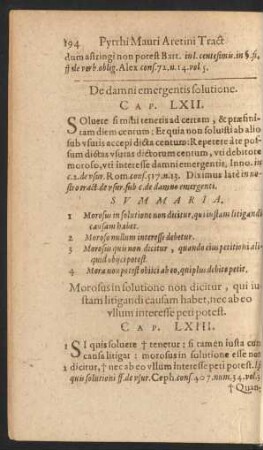 194 Pyrrhi Mauri Aretini Tract
dum astringi non potest Bart. in l. centesimis. in §. fi.
ff de verb. oblig. Alex cons. 72. u. 14. vol 5.
De damni emergentis solutione.
CAP. LXII.
SOluere si mihi teneris ad certam, & præfini-
tam diem centum: Et quia non soluisti ab alio
sub vsuris accepi dicta centum: Repetere à te pos-
sum dictas vsuras dictorum centum, vti debitore
moroso, vti interesse damni emergentis, Inno. in
c. 2. de vsur. Rom. cons. 517. n. 13. Diximus latè in no-
stro tract de vsur. sub c. de damno emergenti.
SVMMARIA.
1 Morosus in solutione non dicitur, qui iustam litigandi
causam habet.
2 Moroso nullum interesse debetur.
3 Morosus quis non dicitur, quando eius petitioni ali-
quid obijci potest.
4 Mora non potest obijci ab eo, qui plus debito petit.
Morosus in solutione non dicitur, qui iu-
stam litigandi causam habet, nec ab eo
vllum interesse peti potest.
CAP. LXIII.
1 SI quis soluere † tenetur: si tamen iusta cum
causa litigat: morosus in solutione esse non
2 dicitur, † nec ab eo vllum interesse peti potest. l si
quis solutioni ff. de vsur. Ceph. cons. 407. nom. 34. vol. 3
† Quan-